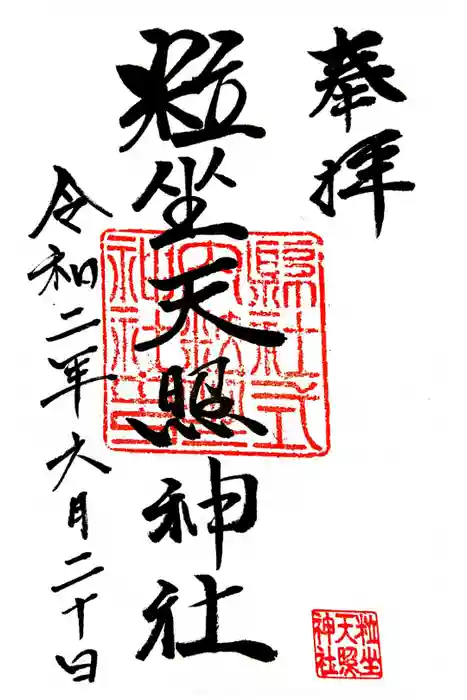 奉拝
粒坐天照神社
令和二年六月二十日
縣社式
粒坐
天照
神社